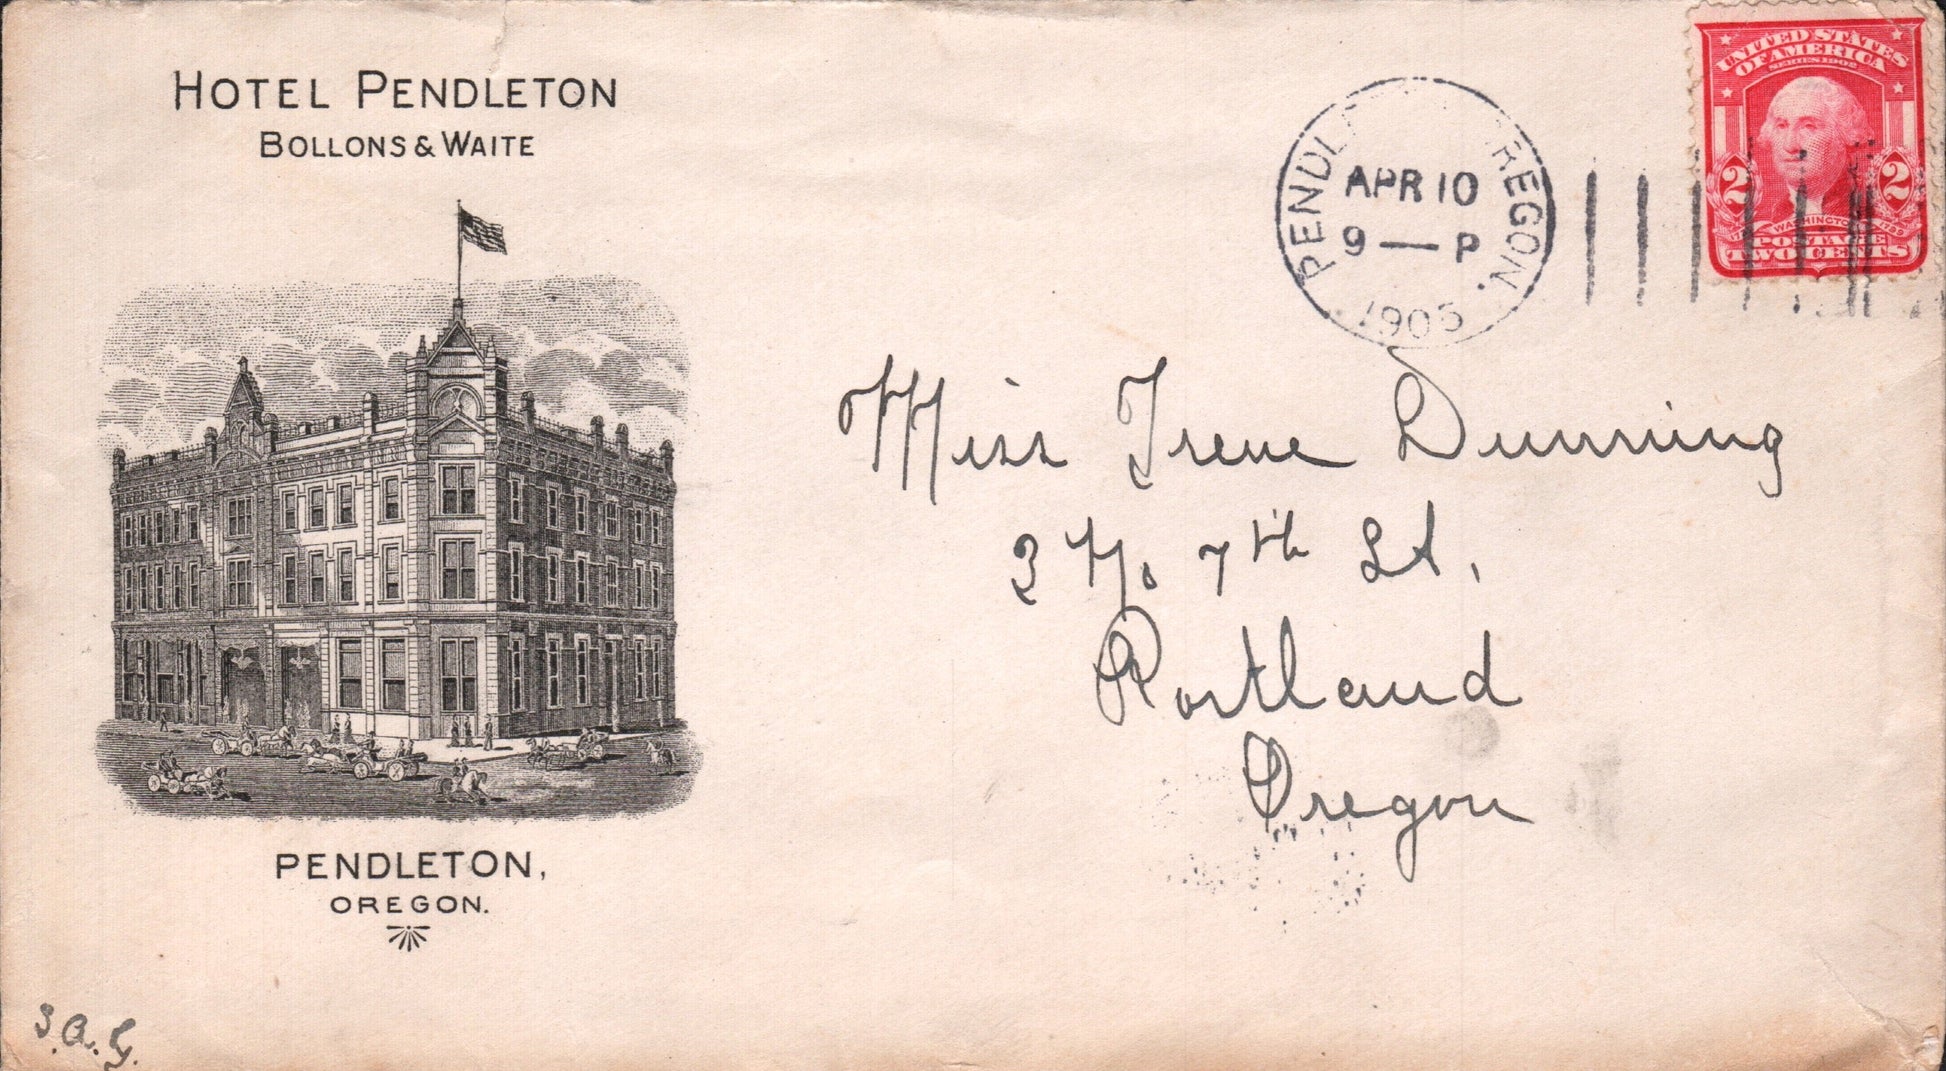 HOTEL PENDLETON
BOLLONS & WAITE
PENDLETON,
OREGON.
PENDL REGON.
APR 10
9 — P
1905
UNITED STATES
OF AMERICA
SERIES 1902
2 2
WASHINGTON
1799
POSTAGE
TWO CENTS
Miss Irene Dunning
7th St,
Portland
Oregon
S.A.G.